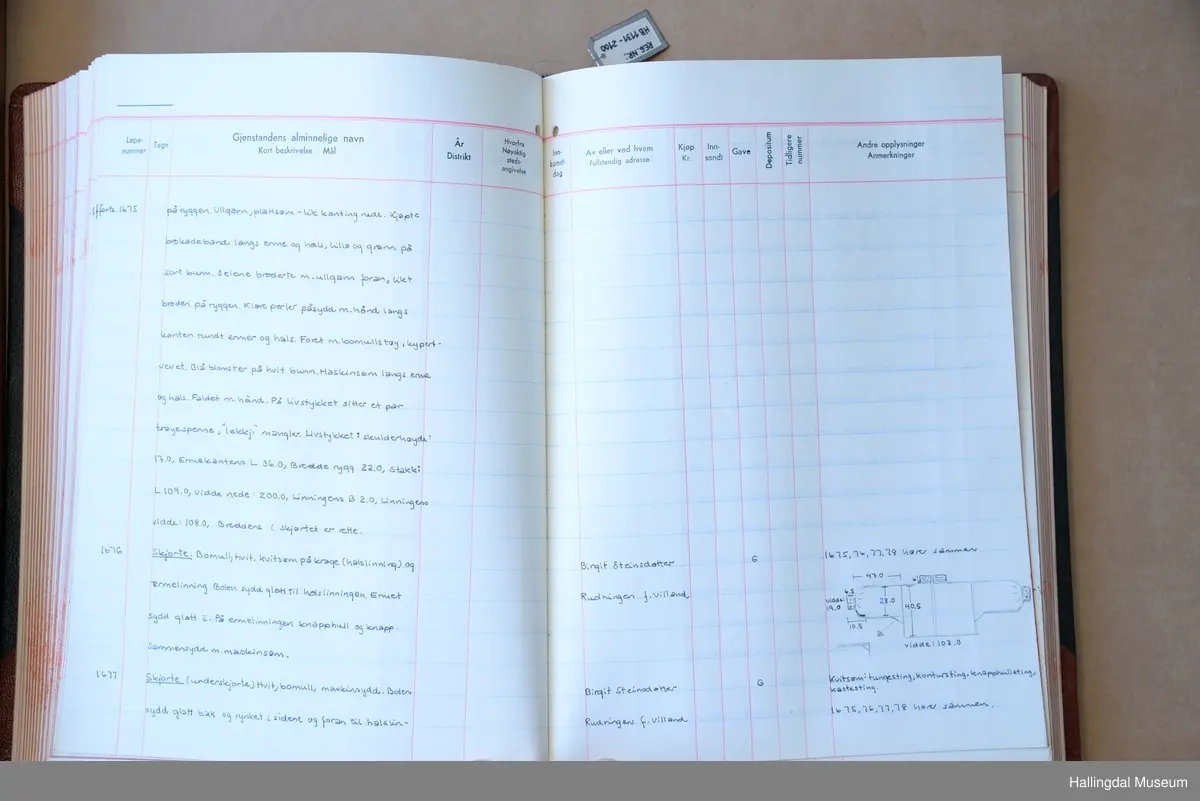 REG.NR.:
HB 1131-2100
Løpe-
nummer
Tegn
Gjenstandens alminnelige navn
Kort beskrivelse Mål
År
Distrikt
Hvorfra
Nøyaktig
steds-
angivelse
Inn-
komst-
dag
Av eller ved hvem
Fullstendig adresse
Kjøp
Kr.
Inn-
sendt
Gave
Depositum
Tidligere
nummer
Andre opplysninger
Anmerkninger
forts. 1675 på ryggen. Ullgarn, plattsøm - lik kanting nede. Kjøpte
brokadebånd langs erme og hals, lilla og grønn på
sort bunn. Selene broderte m. ullgarn foran, likt
broderi på ryggen. Klare perler påsydd m. hånd langs
kanten rundt ermer og hals. Foret m. bomullstøy, kypert-
vevet. Blå blomster på hvit bunn. Maskinsøm langs erme
og hals. Faldet m. hånd. På livstykket sitter et par
trøyesperne, "lekkji" mangler. Livstykket: skulderhøyde:
17.0, Ermekantens L 36.0, Bredde rygg 22.0, Stakk:
L 109.0, vidde nede: 200.0, Linningens B 2.0, Linningens
vidde: 108.0, Breddene i skjørtet er rette.
1676 Skjorte. Bomull, hvit. Kvitsøm på krage (halslinning) og
ermelinning. Bolen sydd glatt til halslinningen. Ermet
sydd glatt i. På ermelinningen knapphull og knapp.
Sammensydd m. maskinsøm.
Birgit Steinsdatter
Rudningen f. Villand
G
1675, 76, 77, 78 hører sammen
47.0
6.5
vidde:
19.0
28.0
40.5
10.5
vidde: 102.0
1677 Skjorte (underskjorte) Hvit, bomull, maskinsydd. Bolen
sydd glatt bak og rynket i sidene og foran til halslin-
Birgit Steinsdatter
Rudningen f. Villand
G
Kvitsøm: tungesting, kontursting, knapphullsting,
kastesting.
1675, 76, 77, 78 hører sammen.
Hallingdal Museum